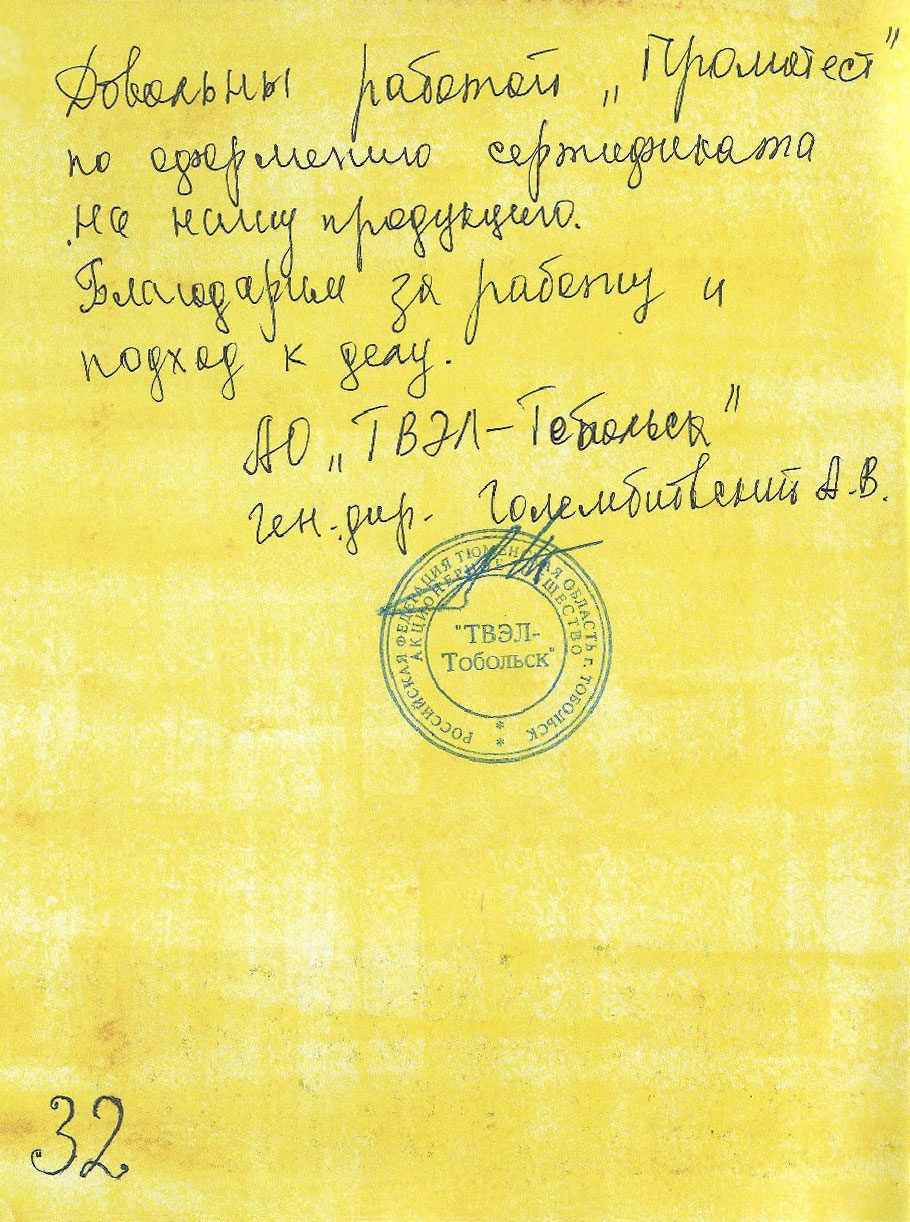 Довольны работой „Промтест"
по оформлению сертификата
на нашу продукцию.
Благодарим за работу и
подход к делу.
АО „ТВЭЛ-Тобольск"
ген.дир. Голембитвский А.В.
РОССИЙСКАЯ ФЕДЕРАЦИЯ ТЮМЕНСКАЯ ОБЛАСТЬ г. ТОБОЛЬСК
АКЦИОНЕРНОЕ ОБЩЕСТВО
"ТВЭЛ-
Тобольск"
* *
32